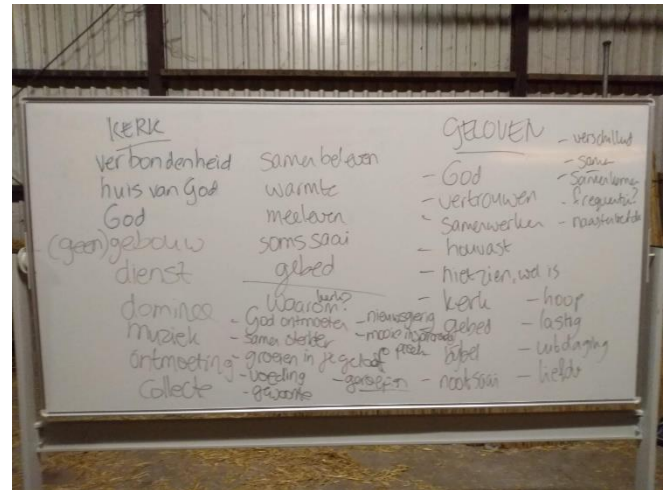 KERK
verbondenheid
huis van God
God
(geen) gebouw
dienst
dominee
muziek
ontmoeting
collecte
samen beleven
warmte
meeleven
soms saai
gebed
Waarom kerk?
- God ontmoeten
- samen sterker
- groeien in je geloof
- voeding
- gewoonte
- nieuwsgierig
- mooie
GELOVEN
- God
- vertrouwen
- samenwerken
- houvast
- niet zien, wel is
- kerk
- gebed
- bijbel
- nooit saai
- hoop
- lastig
- uitdaging
- liefde
- verschillend
- samen
- samenkomen
- frequentie?
- naastenliefde